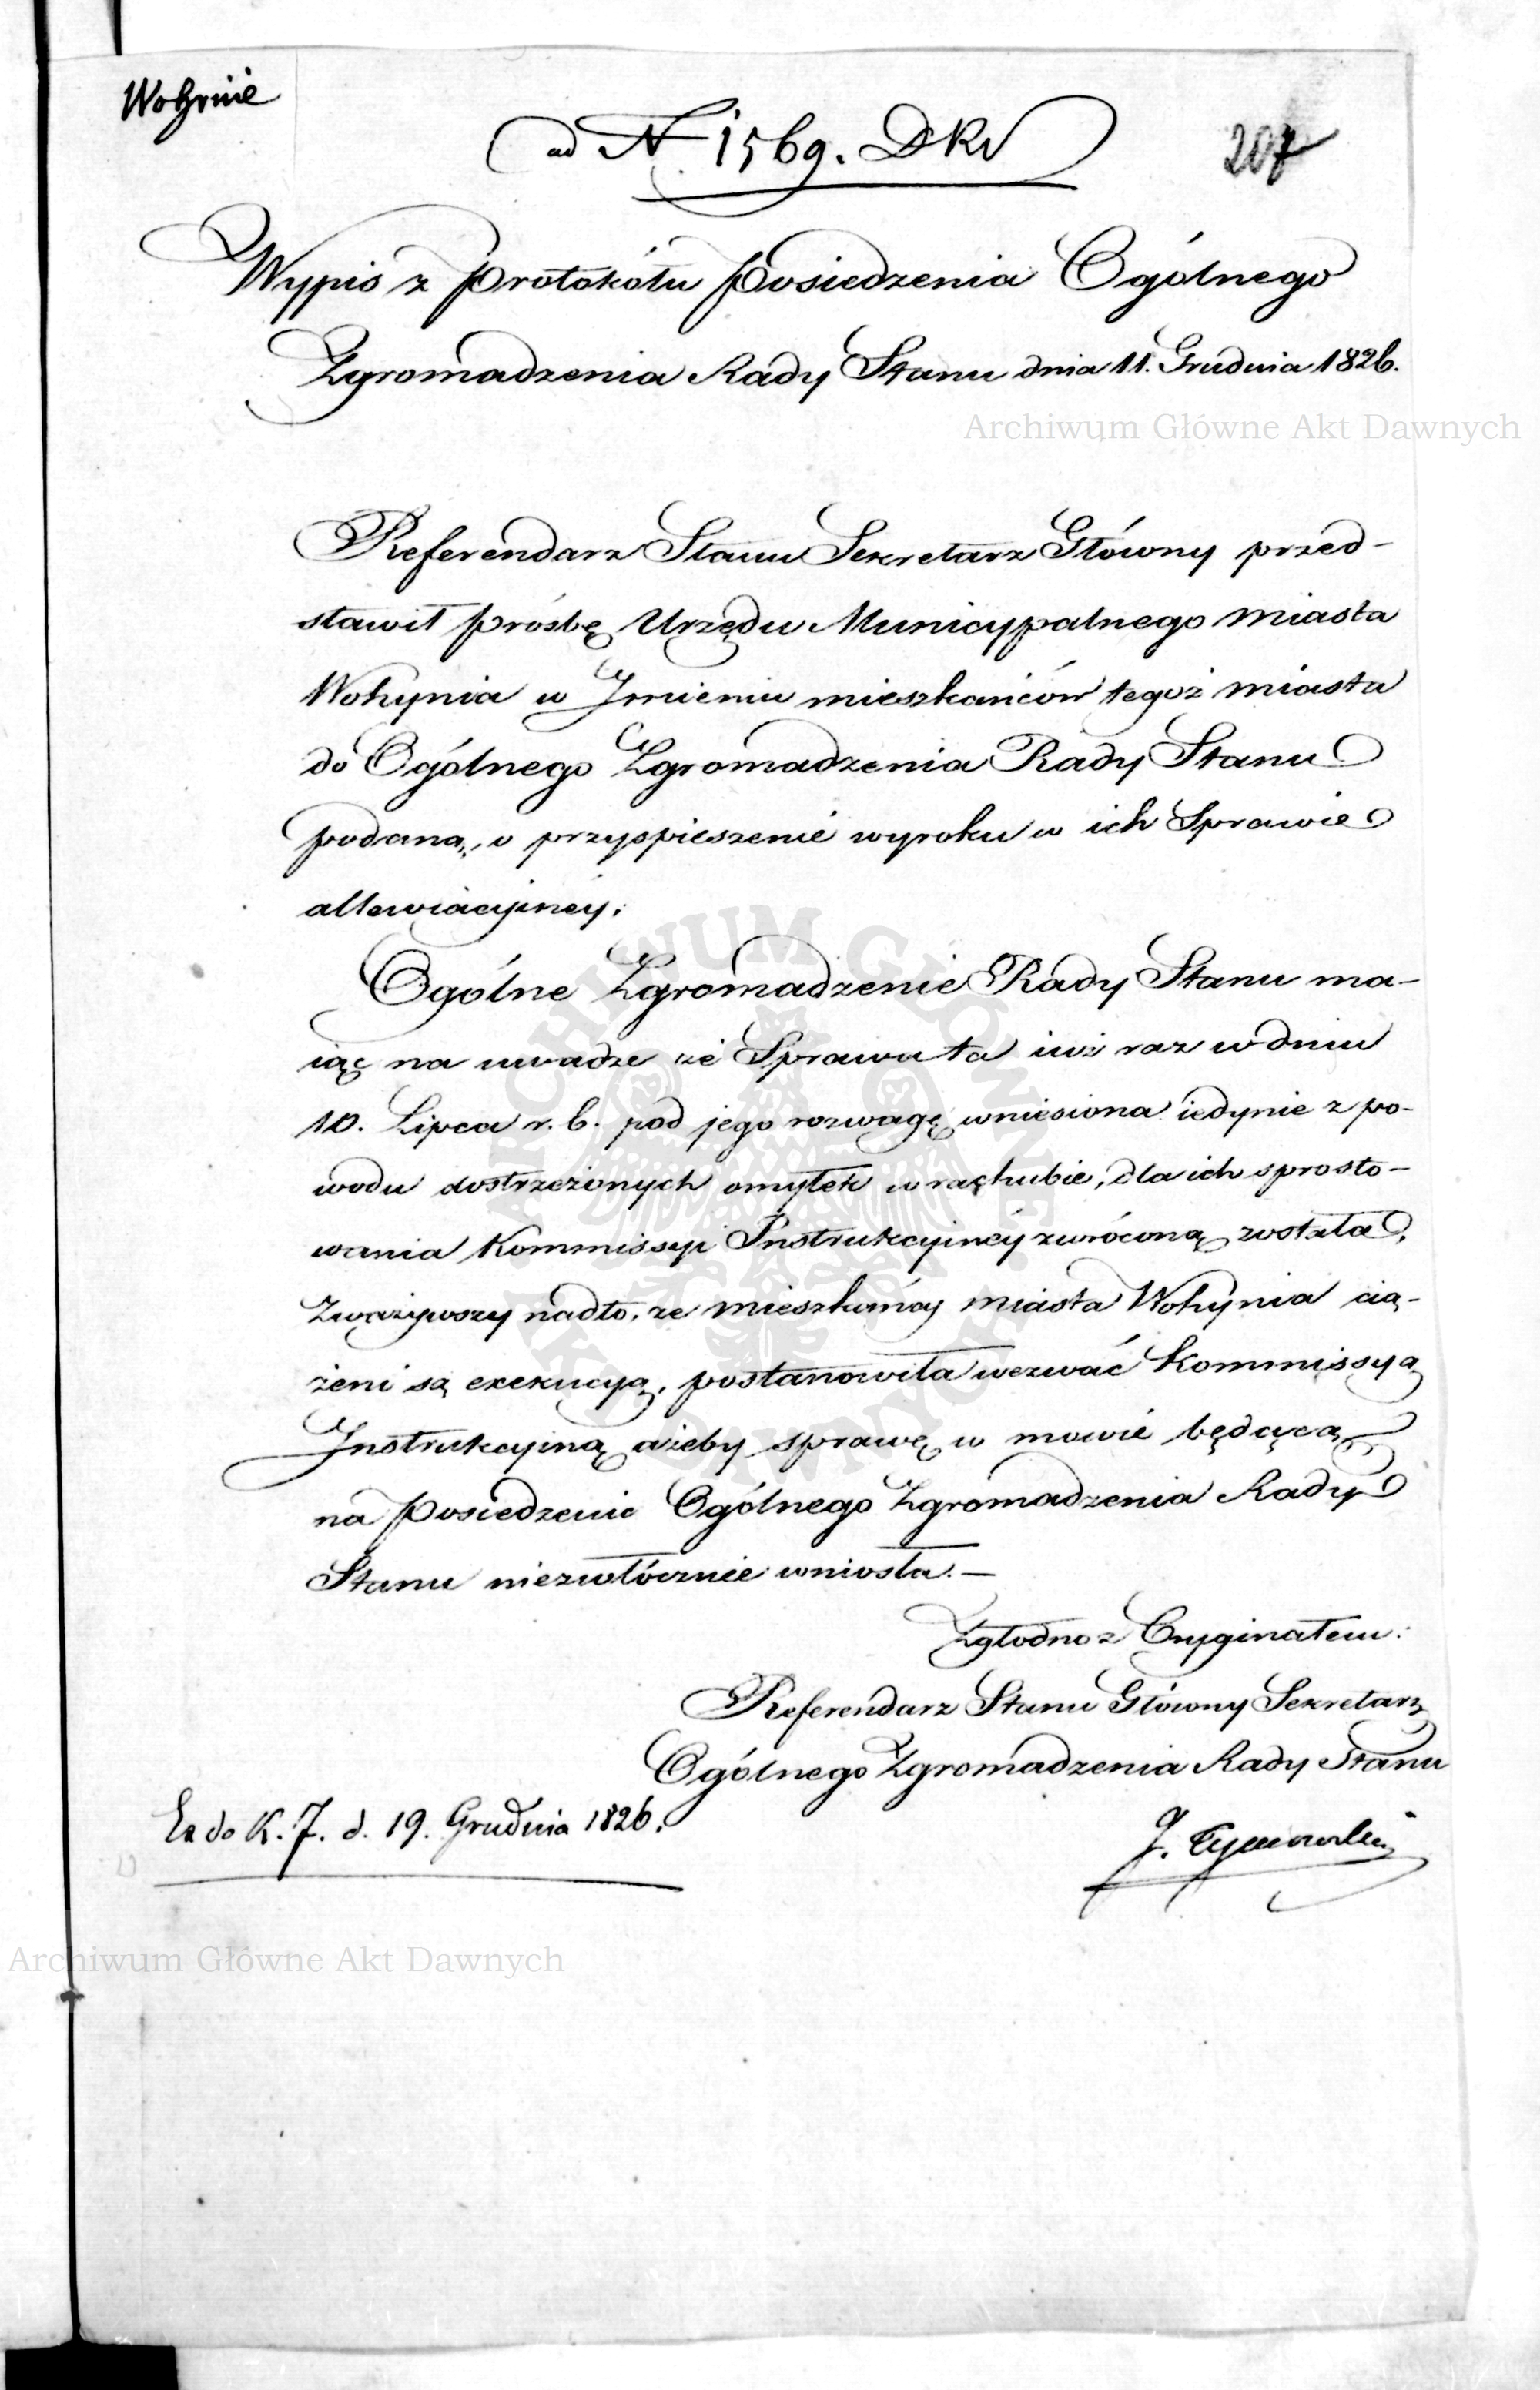 Wohynie
ad N. 1569. DKW
207
Wypis z Protokółu Posiedzenia Ogólnego
Zgromadzenia Rady Stanu dnia 11. Grudnia 1826.
Archiwum Główne Akt Dawnych
Referendarz Stanu Sekretarz Główny przed-
stawił prośbę Urzędu Municypalnego miasta
Wohynia w Jmieniu mieszkańców tegoż miasta
do Ogólnego Zgromadzenia Rady Stanu
podaną, o przyspieszenie wyroku w ich Sprawie
allewiacyjney;
Ogólne Zgromadzenie Rady Stanu ma-
iąc na uwadze że Sprawa ta iuż raz w dniu
10. Lipca r. b. pod jego rozwagę wniesiona iedynie z po-
wodu dostrzeżonych omyłek w rachubie, dla ich sprosto-
wania Kommissyi Instrukcyjnéy zwróconą została,
Zważywszy nadto, że mieszkańcy miasta Wohynia cią-
żeni są exekucyą, postanowiła wezwać Kommissyą
Jnstrukcyjną ażeby sprawę w mowie będącą
na Posiedzenie Ogólnego Zgromadzenia Rady
Stanu niezwłócznie wniosła. —
Zgłodno z Oryginałem:
Referendarz Stanu Główny Sekretarz
Ogólnego Zgromadzenia Rady Stanu
Ex do K. J. d. 19. Grudnia 1826.
J. Tymowski
Archiwum Główne Akt Dawnych
ARCHIWUM GŁÓWNE AKT DAWNYCH